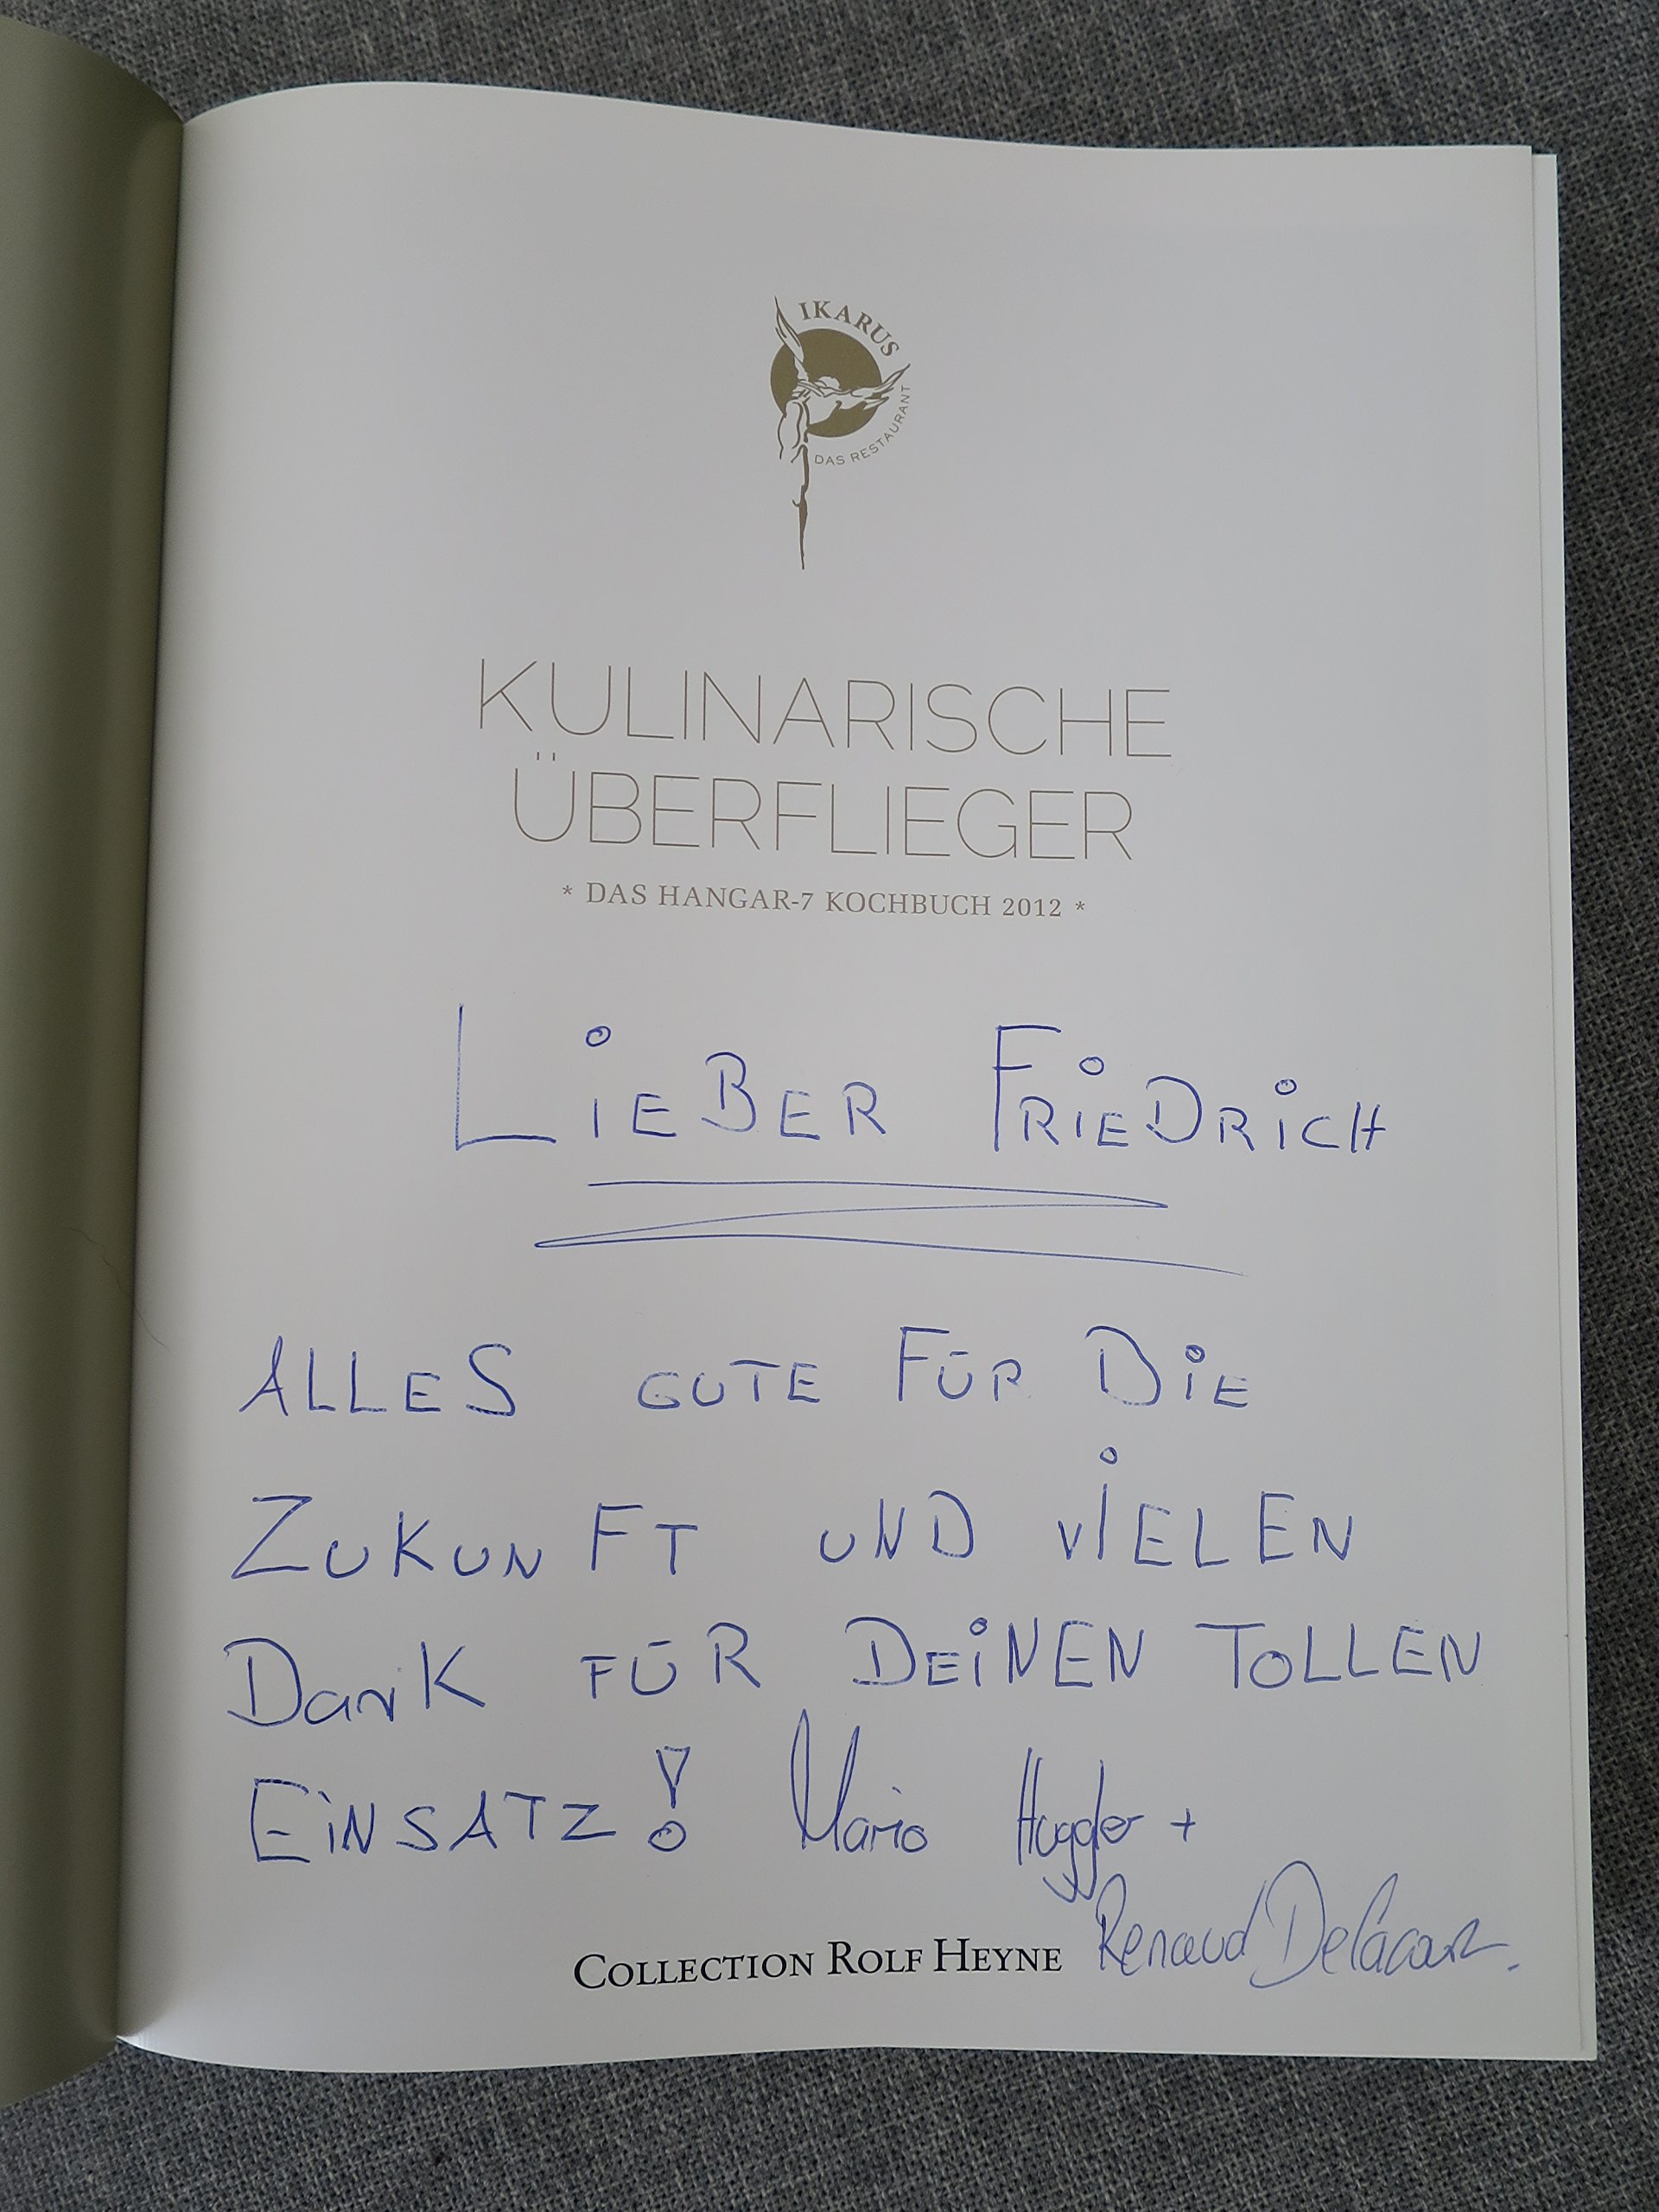 IKARUS
DAS RESTAURANT
KULINARISCHE
ÜBERFLIEGER
* DAS HANGAR-7 KOCHBUCH 2012 *
LiEBER FRiEDRiCH
ALLES GUTE FÜR DiE
ZUKUNFT UND ViELEN
DanK FÜR DEiNEN TOLLEN
EiNSATZ! Mario Huggler +
COLLECTION ROLF HEYNE Renaud Delacour